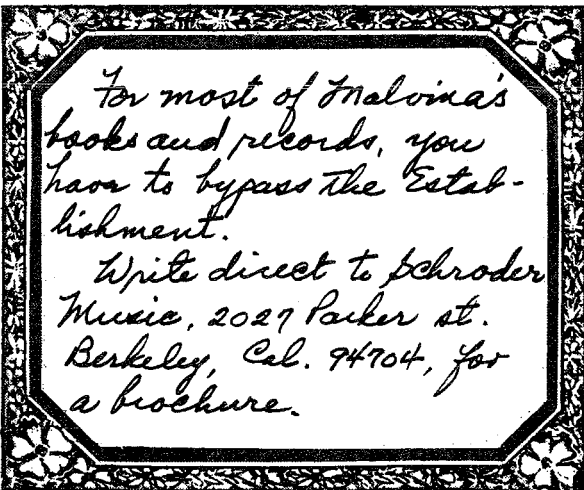 For most of Malvina's
books and records, you
have to bypass the Estab-
lishment.
Write direct to Schroder
Music, 2027 Parker st.
Berkeley, Cal. 94704, for
a brochure.